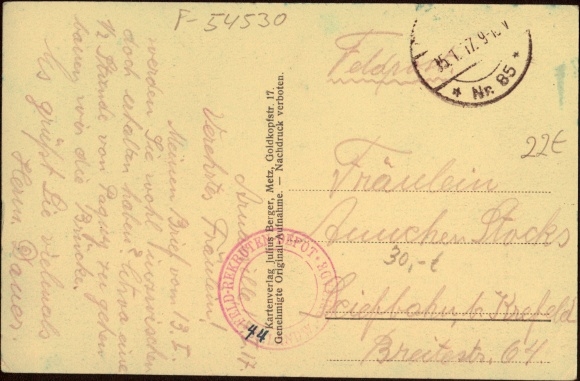 F-54530
Verehrtes Fräulein!
Meinen Brief vom 13. I.
werden Sie wohl inzwischen
doch erhalten haben? Etwa eine
1/2 Stunde von Pagny zu gehen
bauen wir die Brücke.
Es grüßt Sie vielmals
Hans
Kartenverlag Julius Berger, Metz, Goldkopfstr. 17.
Genehmigte Original-Aufnahme. — Nachdruck verboten.
FELD-REKRUTEN-DEPOT
44
17. 9-10 V
* Nr. 85 *
Feldpost
22€
Fräulein
Ännchen Stocks
30,-€
Krefeld
Breitestr. 64.